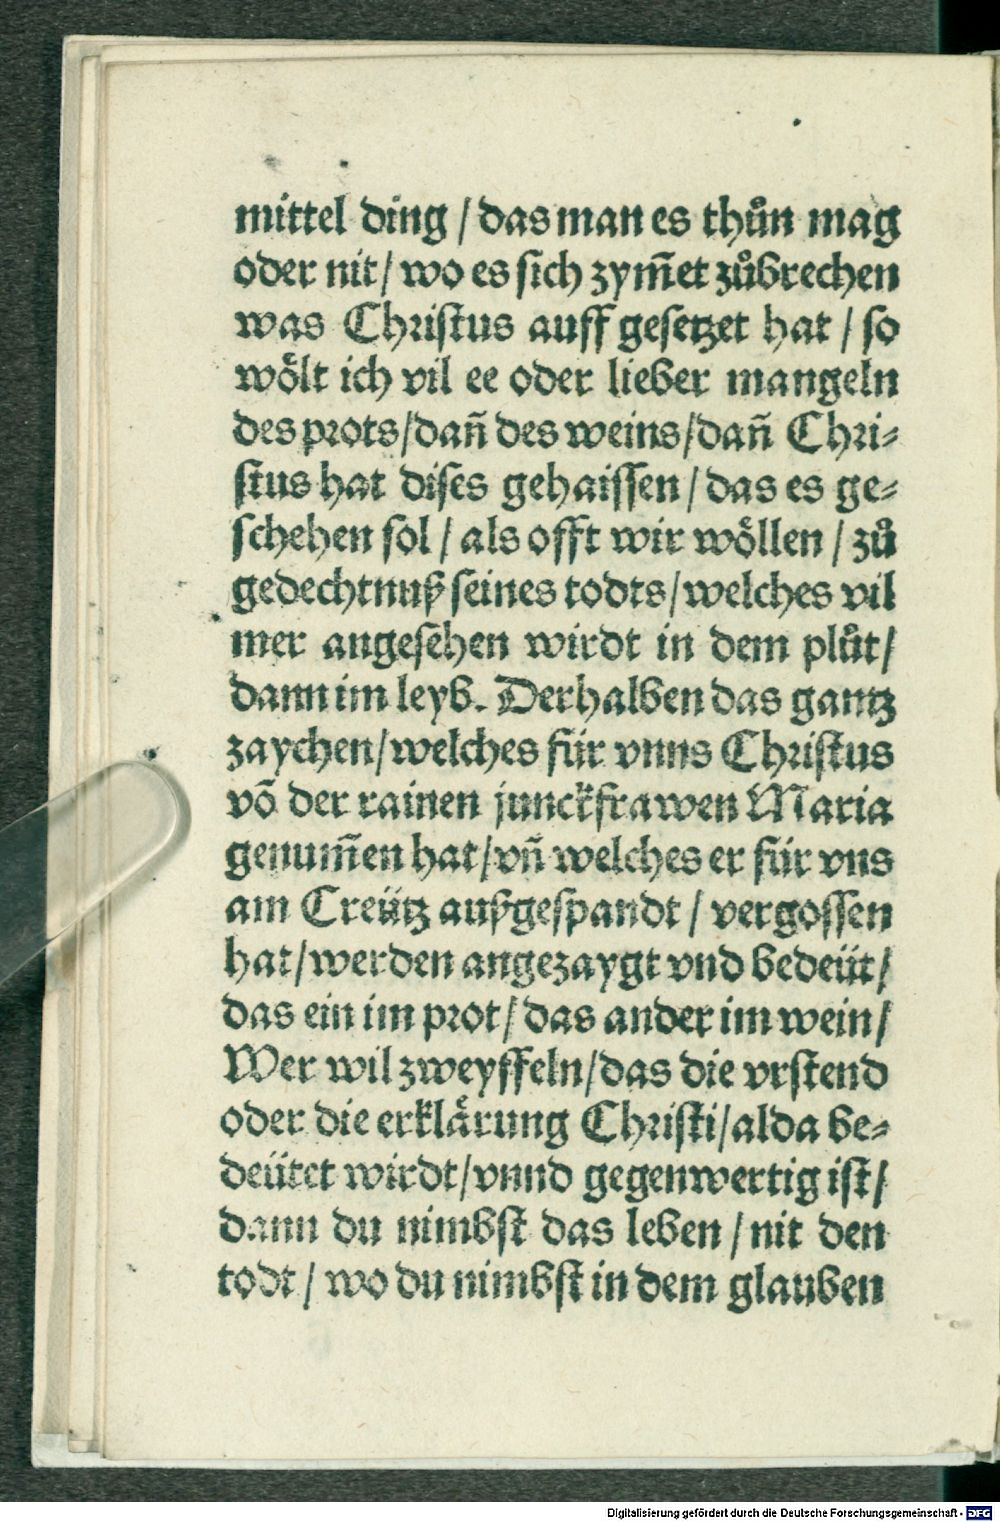 mittel ding / das man es thůn mag
oder nit / wo es sich zym̄et zůbrechen
was Christus auff gesetzet hat / so
woͤlt ich vil ee oder lieber mangeln
des prots / dañ des weins / dañ Chri⸗
stus hat dises gehaissen / das es ge⸗
schehen sol / als offt wir woͤllen / zů
gedechtnuß seines todts / welches vil
mer angesehen wirdt in dem plůt /
dann im leyb. Derhalben das gantz
zaychen / welches für vnns Christus
võ der rainen junckfrawen Maria
genum̄en hat / vñ welches er für vns
am Creütz außgespandt / vergossen
hat / werden angezaygt vnd bedeüt /
das ein im prot / das ander im wein /
Wer wil zweyffeln / das die vrstend
oder die erklaͤrung Christi / alda be⸗
deütet wirdt / vnnd gegenwertig ist /
dann du nimbst das leben / nit den
todt / wo du nimbst in dem glauben
Digitalisierung gefördert durch die Deutsche Forschungsgemeinschaft - DFG